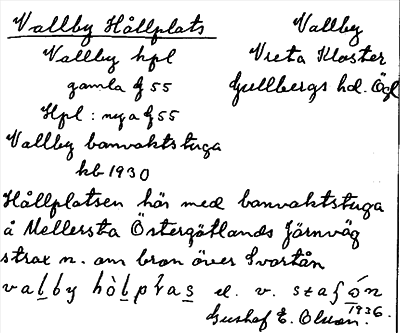 Vallby Hållplats
Vallby
Vallby hpl
Vreta Kloster
gamla G 55
Gullbergs hd. Ögl
Hpl: nya G 55
Vallby banvaktstuga
hb 1930
Hållplatsen hör med banvaktstuga
å Mellersta Östergötlands Järnväg
strax n. om bron över Svartån
valby hòlplras el. v. staſón
1936.
Gustaf E. Olson.